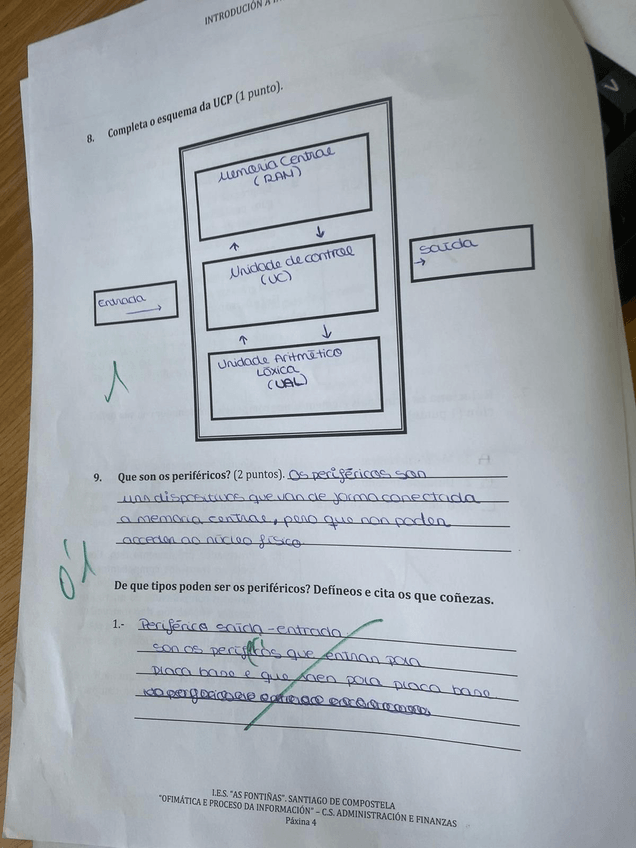 INTRODUCIÓN A
8. Completa o esquema da UCP (1 punto).
Memoria Central
(RAM)
↑ ↓
Unidade de control
(UC)
Entrada
→
Saída
→
↑ ↓
Unidade Aritmético
Lóxica
(UAL)
1
9. Que son os periféricos? (2 puntos). Os periféricos son
uns dispositivos que van de forma conectada
a memoria central, pero que non poden
acceder ao núcleo físico
0'1
De que tipos poden ser os periféricos? Defíneos e cita os que coñezas.
1.- Periférico saída-entrada
son os que entran pola
placa base e que saen pola placa base
I.E.S. "AS FONTIÑAS". SANTIAGO DE COMPOSTELA
"OFIMÁTICA E PROCESO DA INFORMACIÓN" – C.S. ADMINISTRACIÓN E FINANZAS
Páxina 4
V